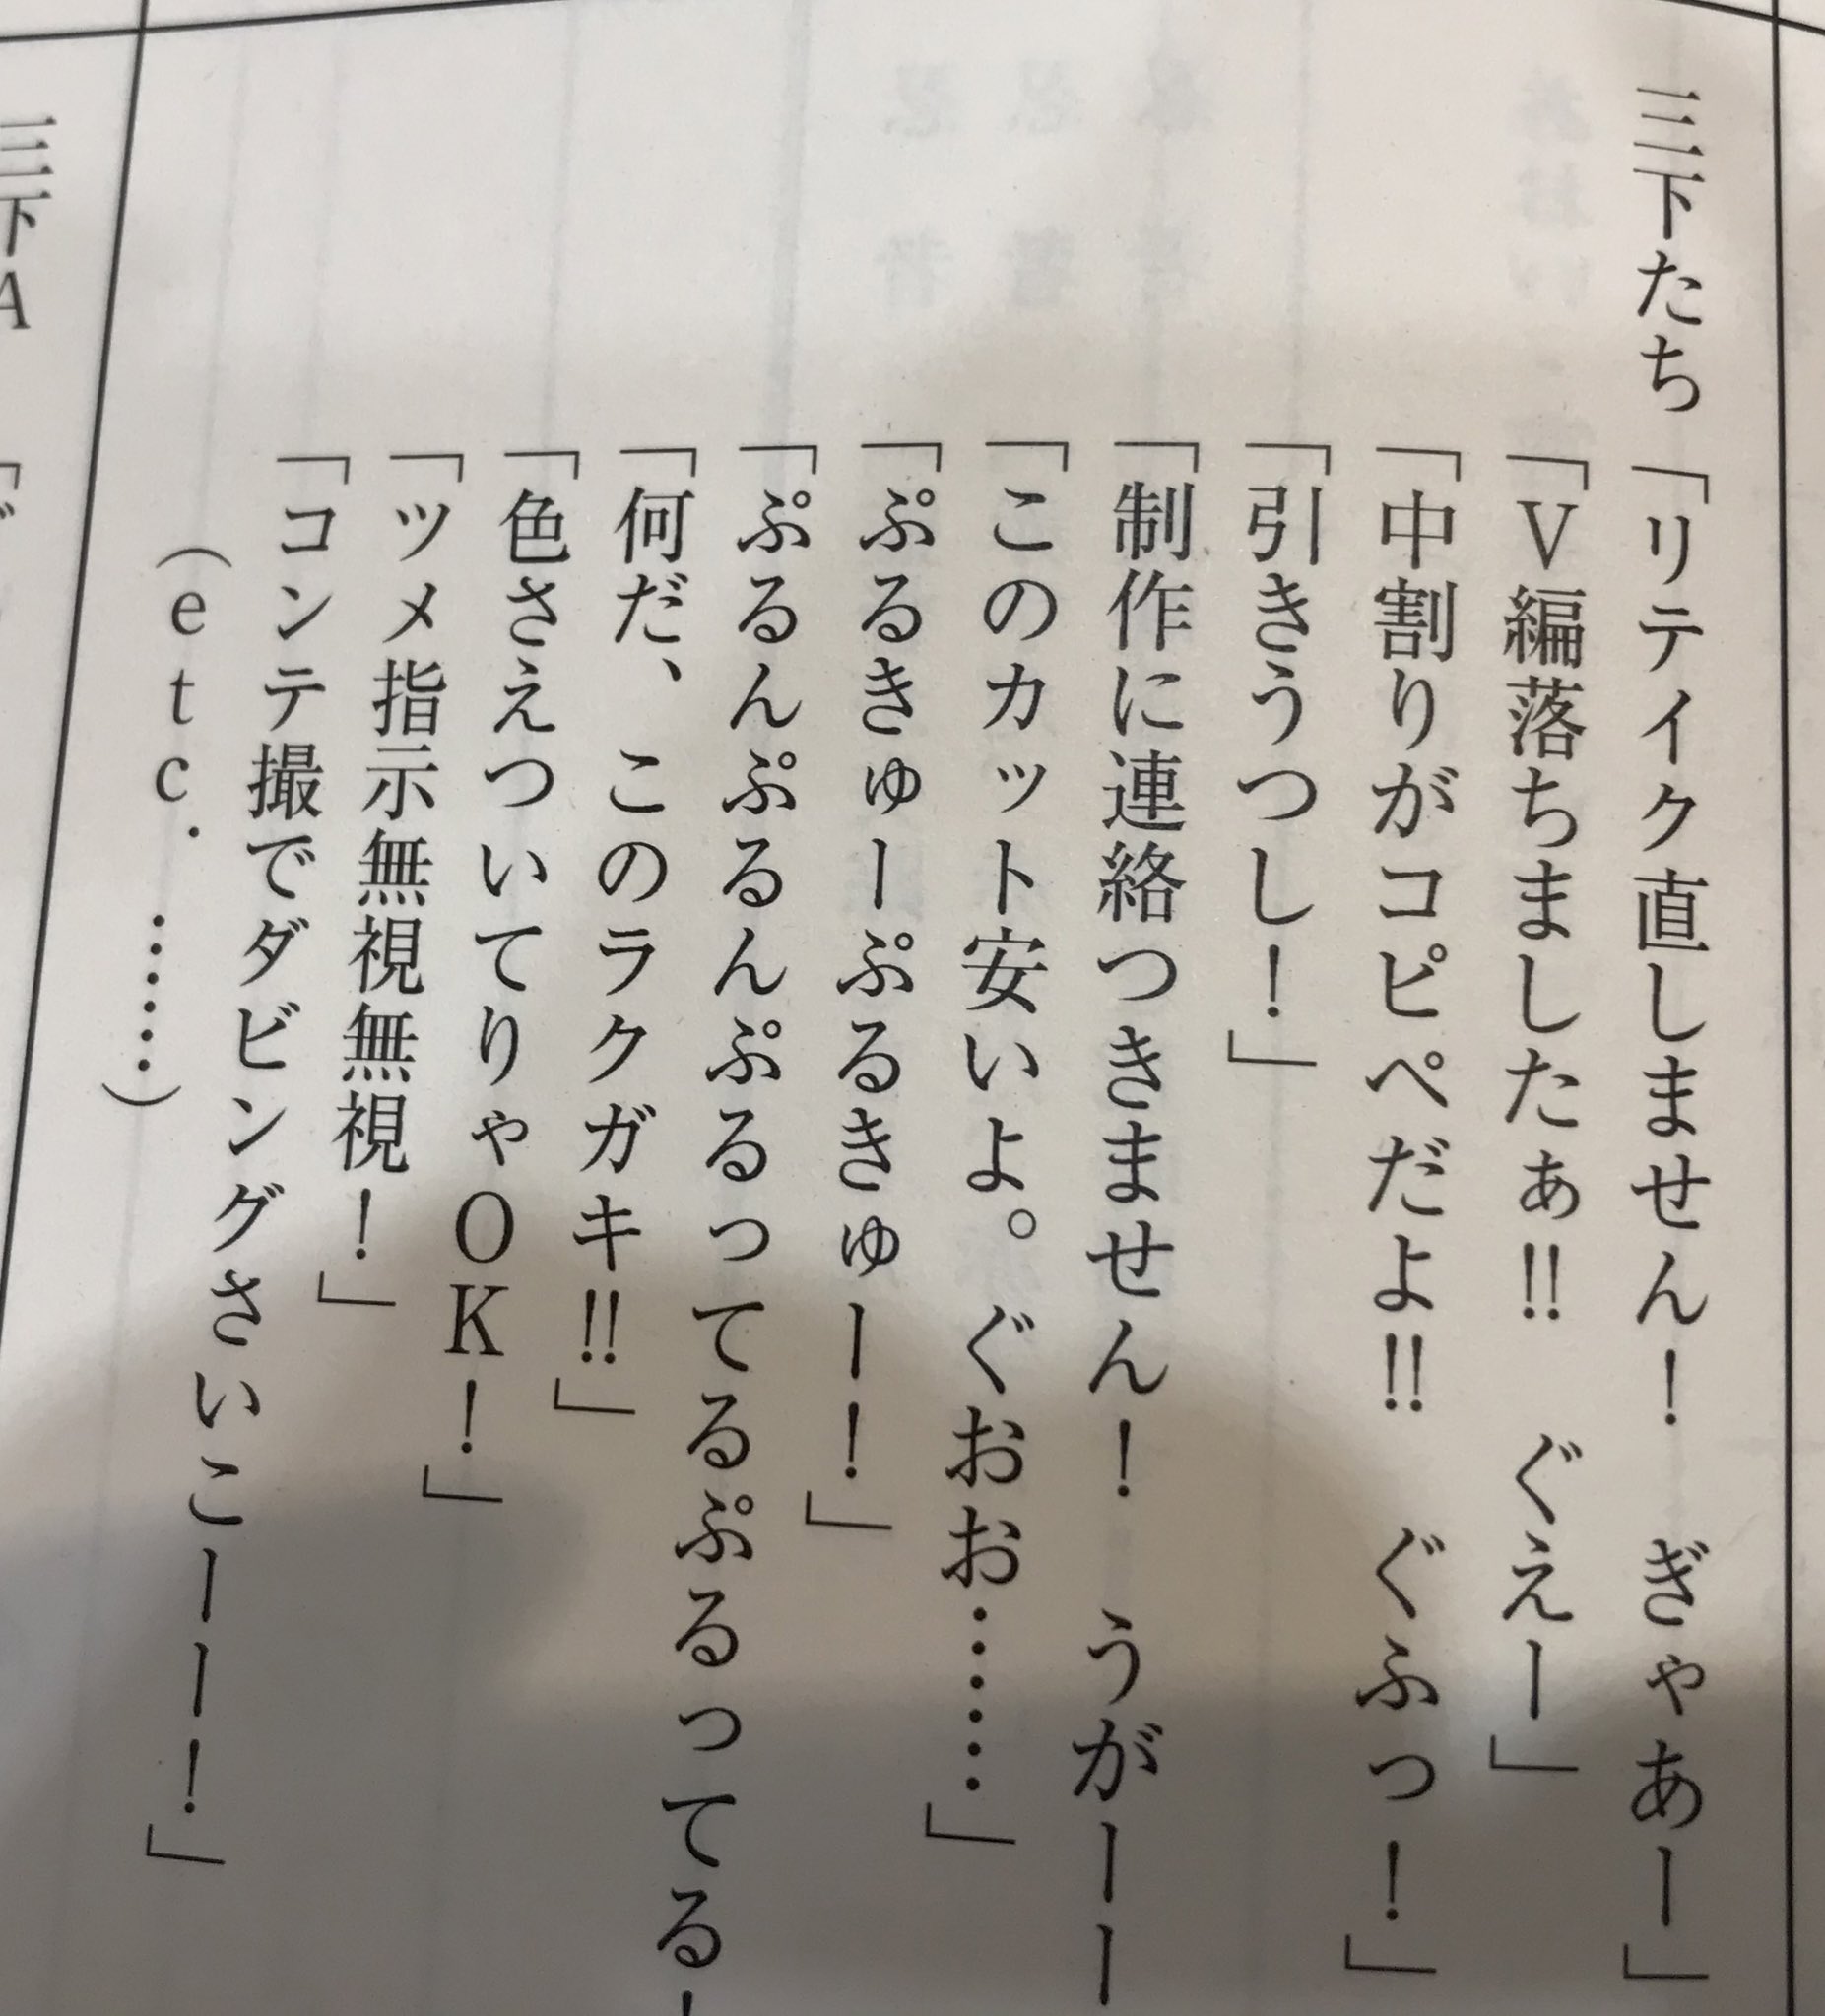 三下たち「リテイク直しません！　ぎゃあー」
「V編落ちましたぁ!!　ぐえー」
「中割りがコピペだよ!!　ぐふっ！」
「引きうつし！」
「制作に連絡つきません！　うがーー
「このカット安いよ。ぐおお……」
「ぷるきゅーぷるきゅー！」
「ぷるんぷるんぷるってるぷるってる！
「何だ、このラクガキ!!」
「色さえついてりゃOK！」
「ツメ指示無視無視！」
「コンテ撮でダビングさいこーー！」
（etc.……）
三下A　「ど